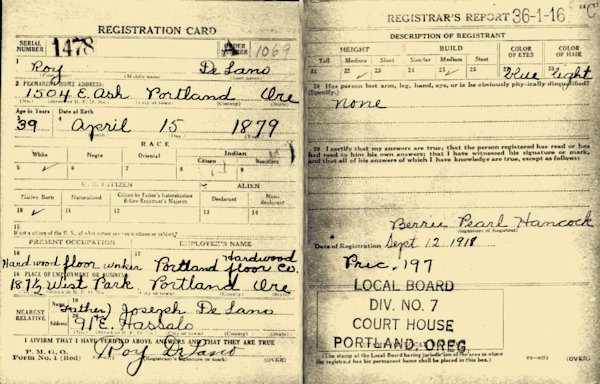 REGISTRATION CARD
SERIAL NUMBER 1478 A ORDER NUMBER 1069
1 Roy De Lano
(First name) (Middle name) (Last name)
2 PERMANENT HOME ADDRESS:
1504 E. Ash Portland Ore
(No.) (Street or R. F. D. No.) (City or town) (County) (State)
Age in Years Date of Birth
39 April 15 1879
RACE
White Negro Oriental Indian
Citizen Noncitizen
5 6 7 8 9
U. S. CITIZEN ALIEN
Native Born Naturalized Citizen by Father's Naturalization Before Registrant's Majority Declarant Non-declarant
10 11 12 13 14
15
If not a citizen of the U. S., of what nation are you a citizen or subject?
PRESENT OCCUPATION EMPLOYER'S NAME
16 Hardwood floor worker 17 Portland Hardwood floor Co.
18 PLACE OF EMPLOYMENT OR BUSINESS:
187½ West Park Portland Ore
(No.) (Street or R. F. D. No.) (City or town) (County) (State)
NEAREST RELATIVE
Name 19 (Father) Joseph De Lano
Address 20 91 E. Hassalo
I AFFIRM THAT I HAVE VERIFIED ABOVE ANSWERS AND THAT THEY ARE TRUE
P. M. G. O.
Form No. 1 (Red) Roy De Lano
(Registrant's signature or mark) (OVER)
REGISTRAR'S REPORT 36-1-16
C
DESCRIPTION OF REGISTRANT
HEIGHT BUILD COLOR OF EYES COLOR OF HAIR
Tall Medium Short Slender Medium Stout
21 22 23 24 25 26 27 blue 28 light
29 Has person lost arm, leg, hand, eye, or is he obviously physically disqualified?
(Specify.)
none
30 I certify that my answers are true; that the person registered has read or has had read to him his own answers; that I have witnessed his signature or mark, and that all of his answers of which I have knowledge are true, except as follows:
Berrie Pearl Hancock
(Signature of Registrar)
Date of Registration Sept 12 1918
Prec. 197
LOCAL BOARD
DIV. NO. 7
COURT HOUSE
PORTLAND, OREG
(The stamp of the Local Board having jurisdiction of the area in which the registrant has his permanent home shall be placed in this box.)
(OVER)